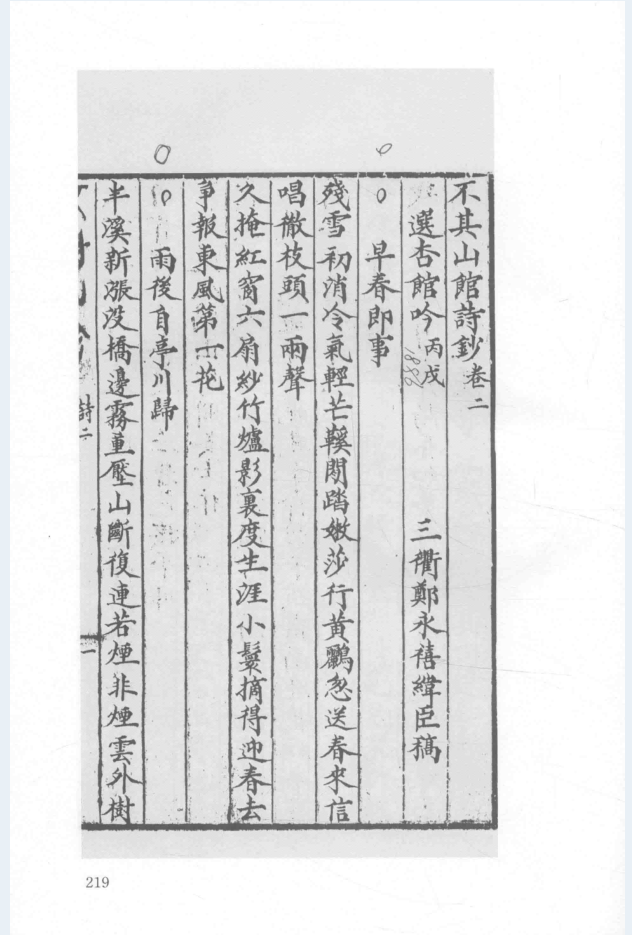 不其山館詩鈔卷二
選杏館吟丙戌 1886 三衢鄭永禧緯臣稿
早春即事
殘雪初消冷氣輕芒鞵閒踏嫩莎行黃鸝忽送春來信
唱徹枝頭一兩聲
久掩紅窗六扇紗竹爐影裏度生涯小鬟摘得迎春去
爭報東風第一花
雨後自亭川歸
半溪新漲没橋邊霧重壓山斷復連若煙非煙雲外樹
詩二
一
219